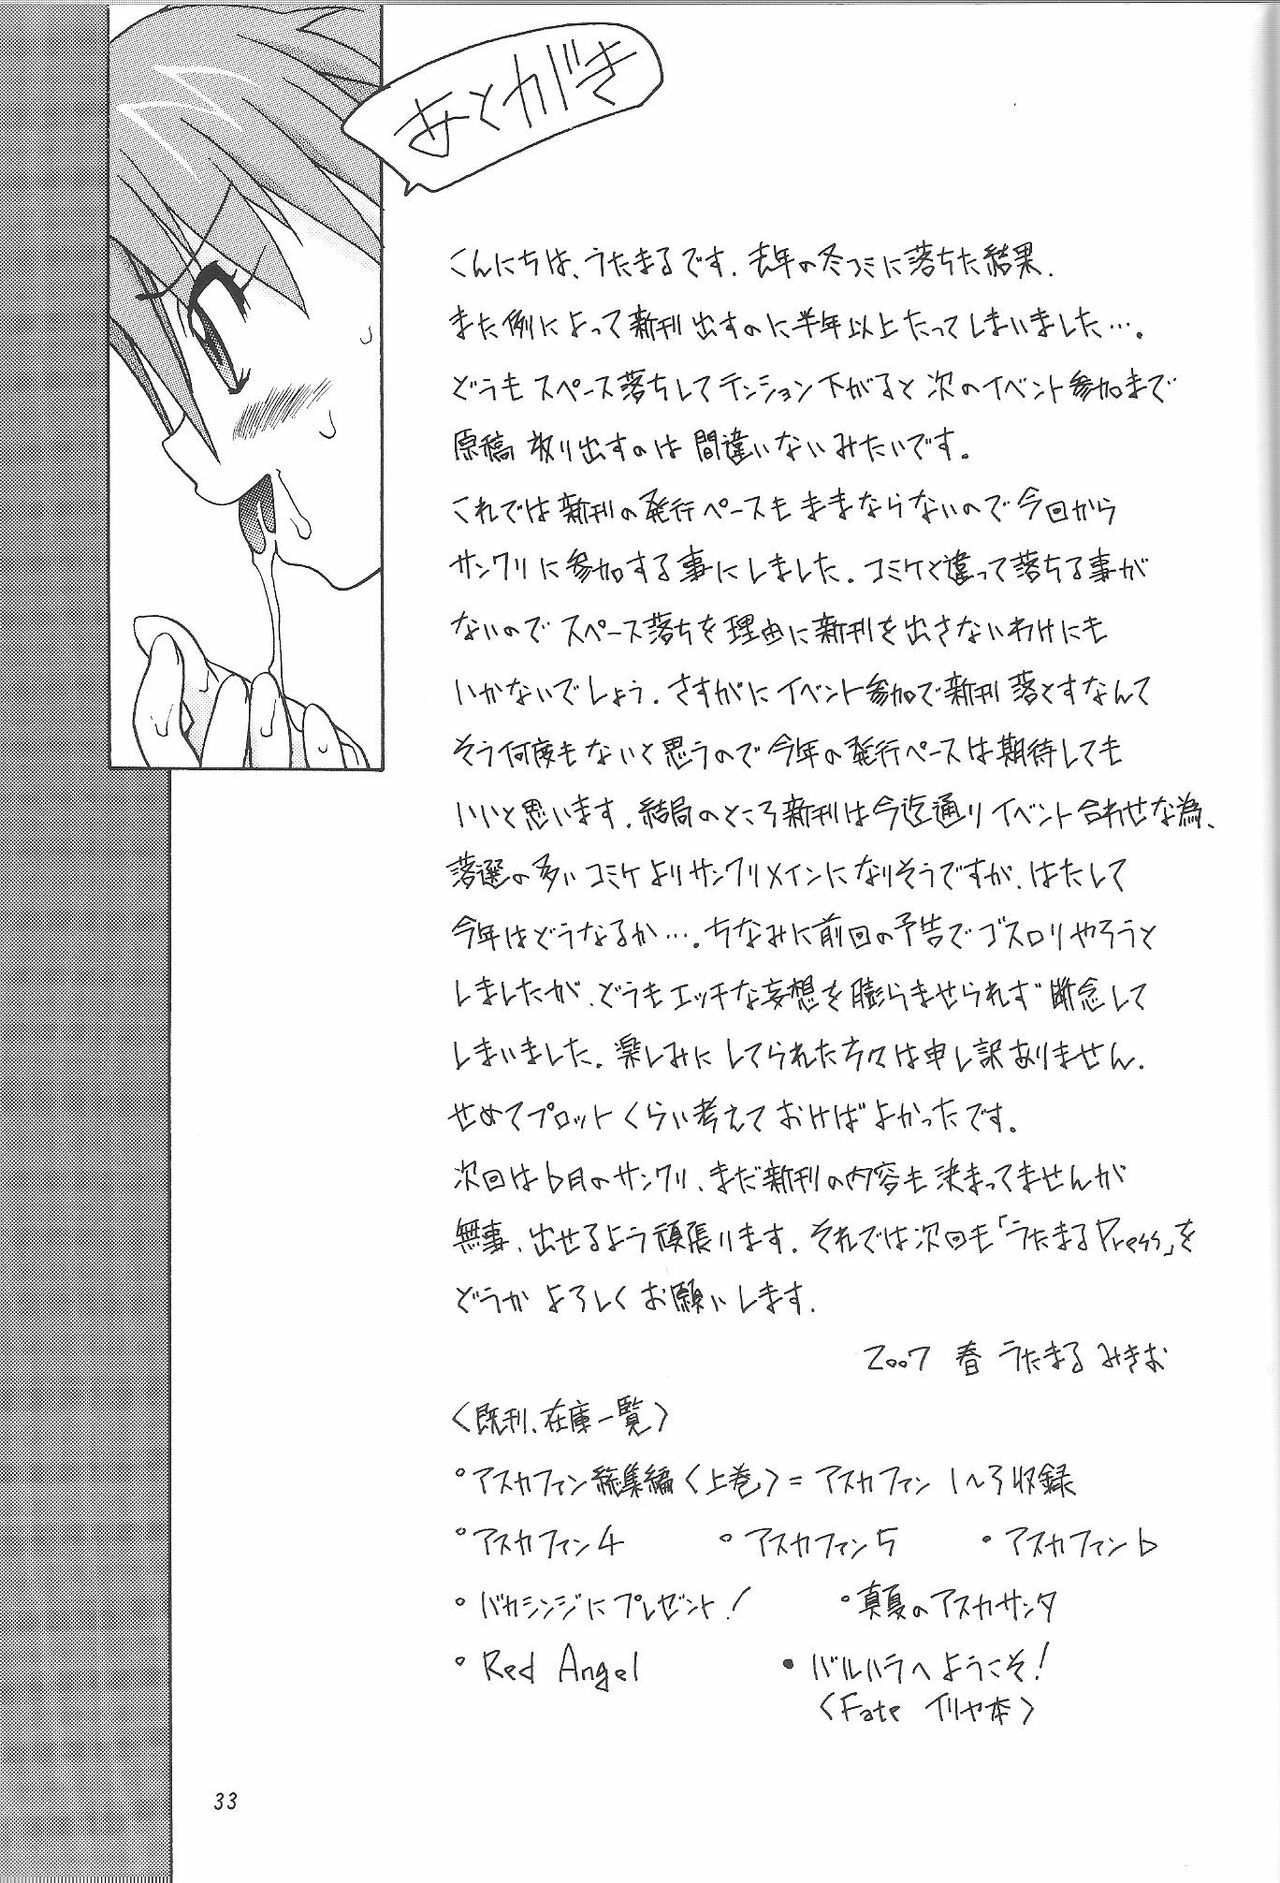 あとがき
こんにちは、うたまるです。去年の冬コミに落ちた結果、
また例によって新刊出すのに半年以上たってしまいました…。
どうもスペース落ちしてテンション下がると次のイベント参加まで
原稿放り出すのは間違いないみたいです。
これでは新刊の発行ペースもままならないので今回から
サンクリに参加する事にしました。コミケと違って落ちる事が
ないのでスペース落ちを理由に新刊を出さないわけにも
いかないでしょう。さすがにイベント参加で新刊落とすなんて
そう何度もないと思うので今年の発行ペースは期待しても
いいと思います。結局のところ新刊は今迄通りイベント合わせな為、
落選の多いコミケよりサンクリメインになりそうですが、はたして
今年はどうなるか…。ちなみに前回の予告でゴスロリやろうと
しましたが、どうもエッチな妄想を膨らませられず断念して
しまいました。楽しみにしてられた方々は申し訳ありません。
せめてプロットくらい考えておけばよかったです。
次回は6月のサンクリ、まだ新刊の内容も決まってませんが
無事、出せるよう頑張ります。それでは次回も「うたまるPress」を
どうかよろしくお願いします。
2007 春 うたまる みきお
〈既刊、在庫一覧〉
°アスカファン総集編〈上巻〉=アスカファン 1〜3収録
°アスカファン4 °アスカファン5 °アスカファン6
°バカシンジにプレゼント! °真夏のアスカサンタ
°Red Angel •バルハラへようこそ!
〈Fate イリヤ本〉
33